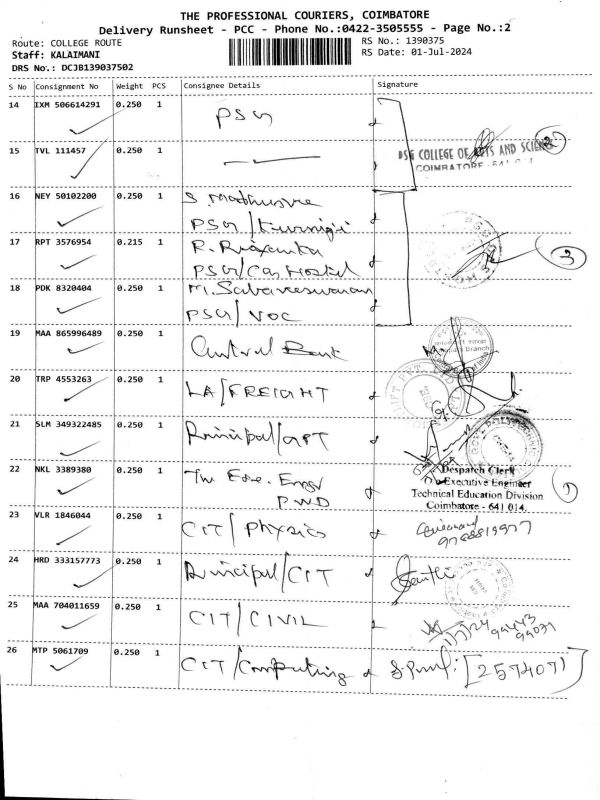 THE PROFESSIONAL COURIERS, COIMBATORE
Delivery Runsheet - PCC - Phone No.:0422-3505555 - Page No.:2
Route: COLLEGE ROUTE
RS No.: 1390375
Staff: KALAIMANI
RS Date: 01-Jul-2024
DRS No.: DCJB139037502
S No Consignment No Weight PCS Consignee Details Signature
14 IXM 506614291 0.250 1 PSG
15 TVL 111457 0.250 1
PSG COLLEGE OF ARTS AND SCIENCE
COIMBATORE - 641 014
16 NEY 50102200 0.250 1
PSG/
17 RPT 3576954 0.215 1 R. Priyanka
PSG/Cas Hostel
3
18 PDK 8320404 0.250 1 M. Sabareeswaran
PSG/VOC
19 MAA 865996489 0.250 1 Central Bank
20 TRP 4553263 0.250 1 LA/FREIGHT
21 SLM 349322485 0.250 1 Principal/GPT
22 NKL 3389380 0.250 1 The Exe. Engr
PWD
Despatch Clerk
Executive Engineer
Technical Education Division
Coimbatore - 641 014.
1
23 VLR 1846044 0.250 1 CIT/Physics
24 HRD 333157773 0.250 1 Principal/CIT
25 MAA 704011659 0.250 1 CIT/CIVIL
26 MTP 5061709 0.250 1 CIT/Computing
[257407]